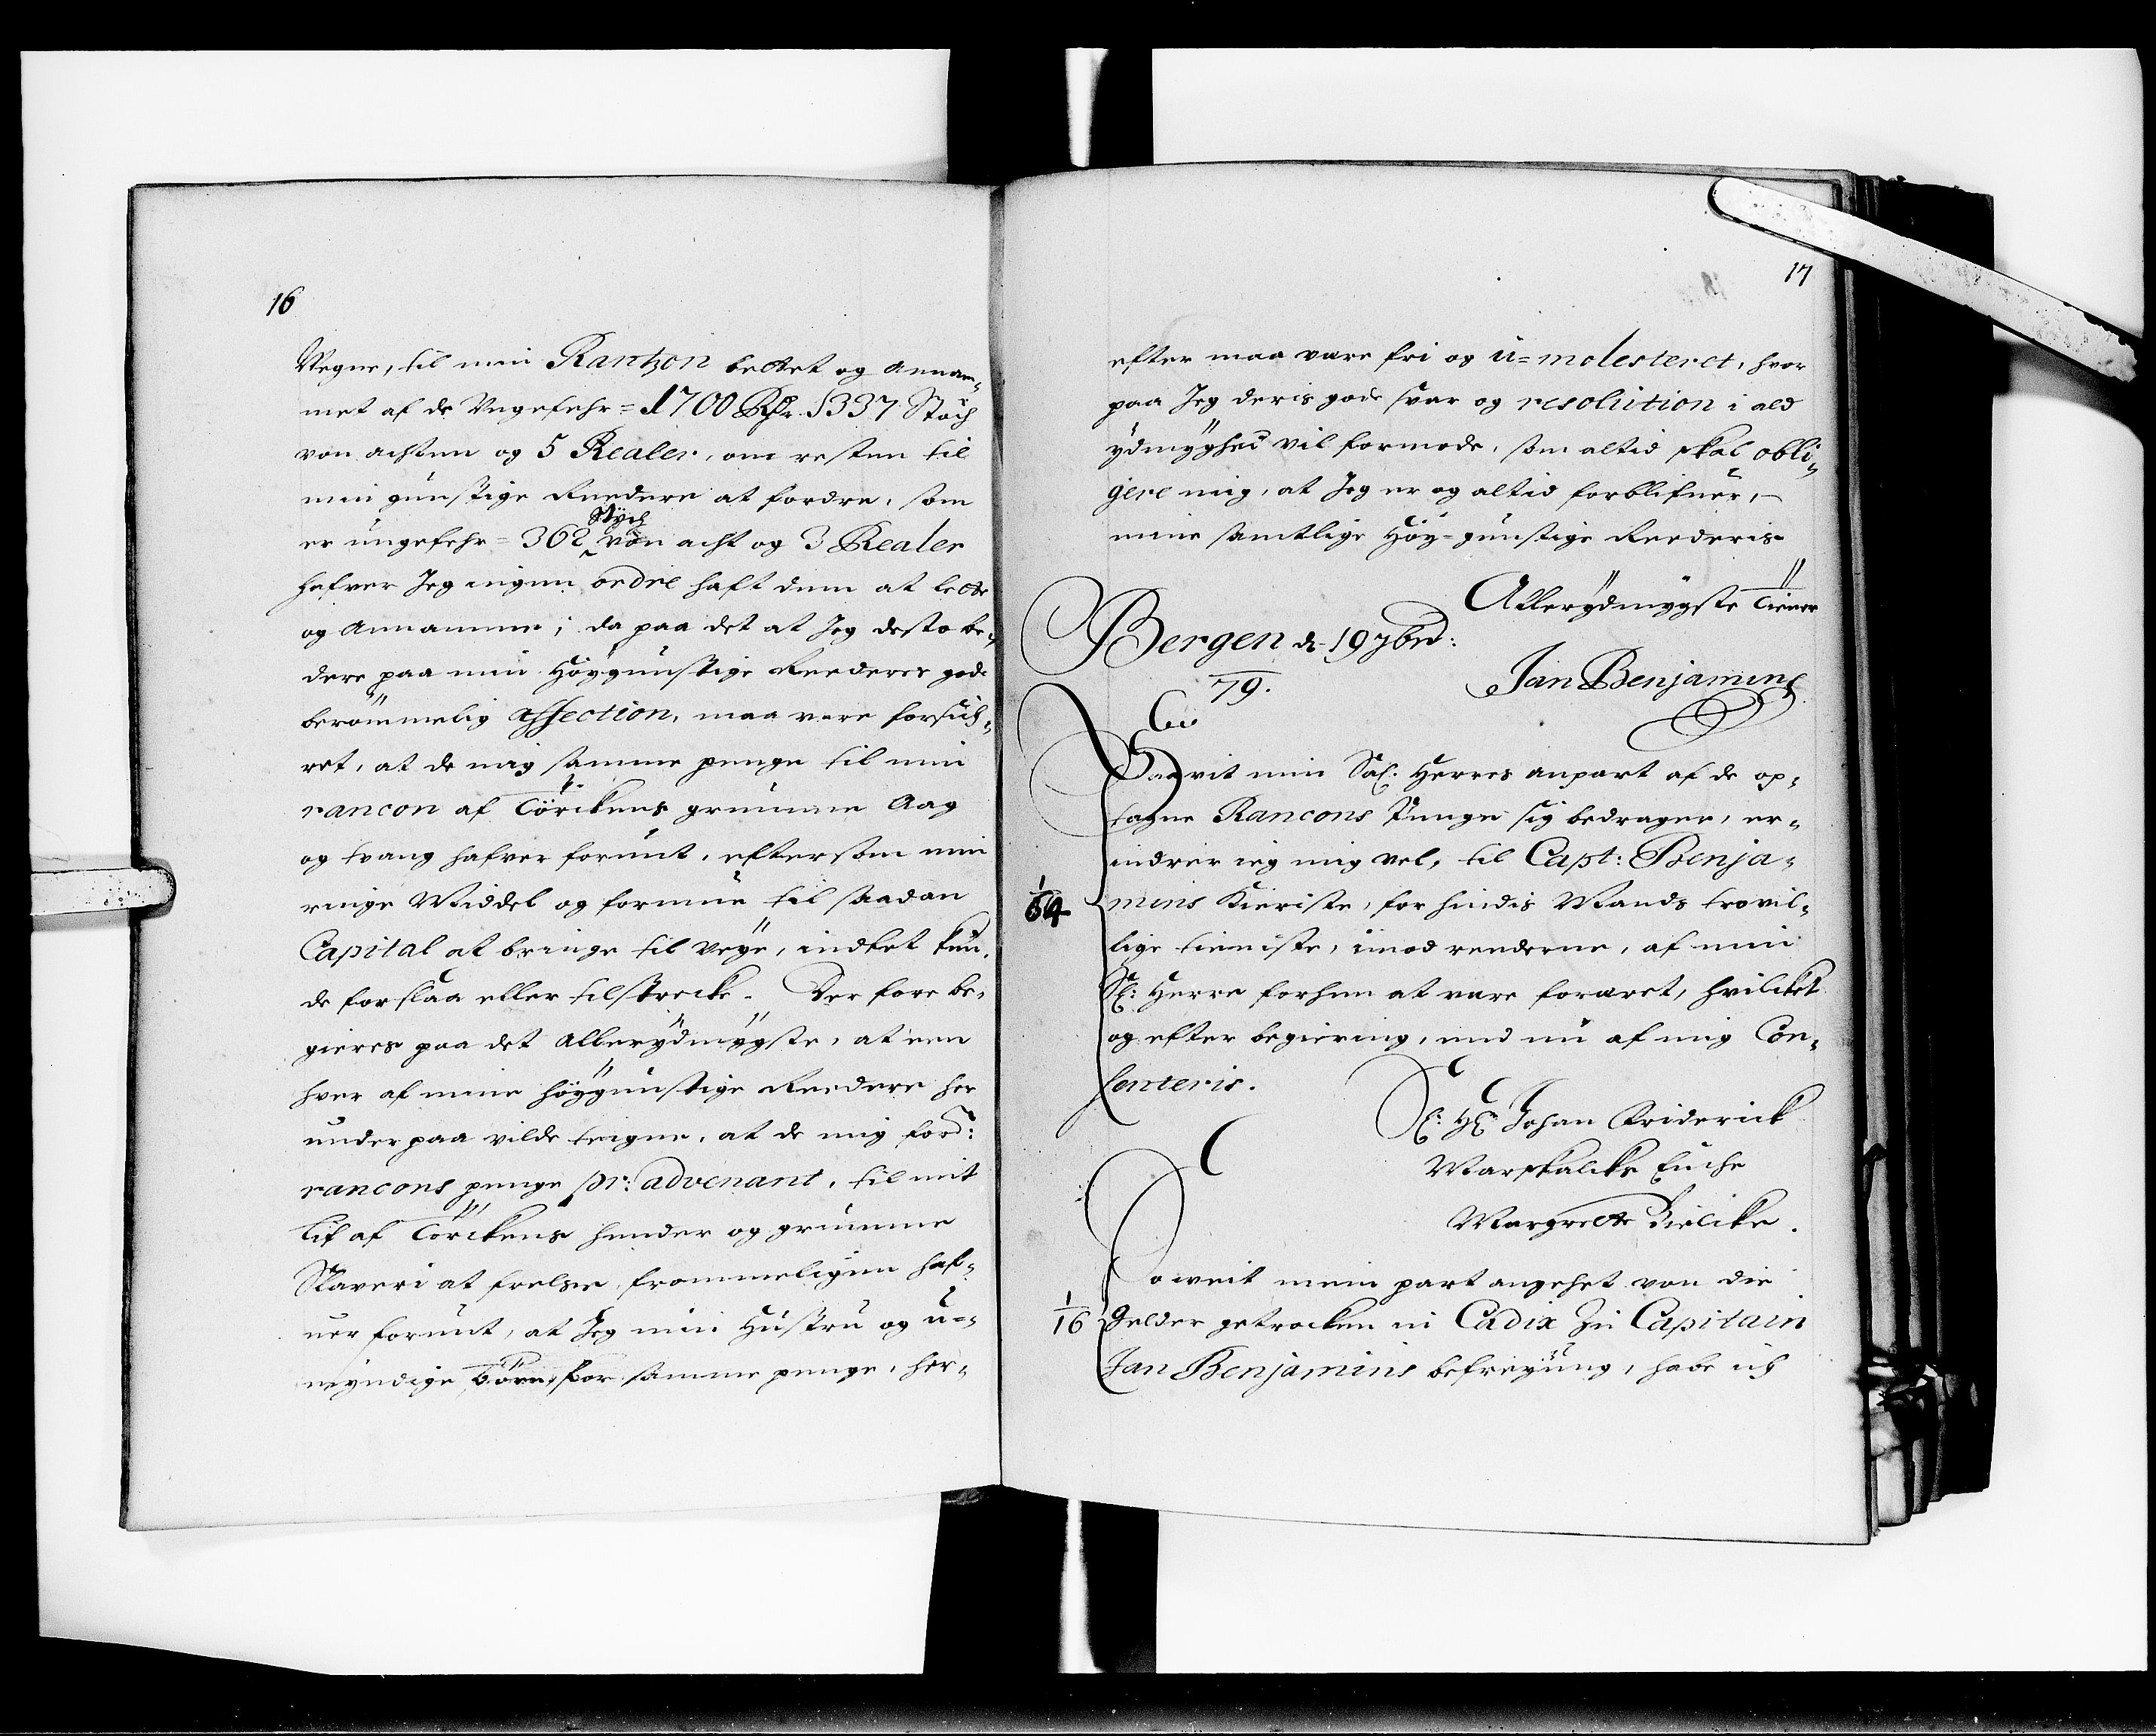 16
Vegne, til min Rantzon lettet og annam-
met af de Ungefehr = 1700 Rdr. 1337 Stöch
von achten og 5 Realer, om resten til
min gunstige Reedere at fordre, som
er ungefehr = 362 Stych von acht og 3 Realer
hafver Jeg ingen ordre haft dem at lette
og Annamme; da paa det at Jeg desto be-
dere paa min Höygunstige Reederes gode
berömmelig affection, maa vere forsich-
ret, at de mig samme penge til min
rancon af Törckens grumme Aag
og tvang hafver forunt, eftersom min
ringe Middel og formue til saadan
Capital at bringe til veye, indtet kun-
de forslaa eller tilstrecke. Der fore be-
gieres paa det allerydmygste, at een
hver af mine höygunstige Reedere her
under paa vilde teigne, at de mig ford:
rancons penge pr: advenant, til mit
Lif af Törckens hender og grumme
Slaveri at frelse, frommeligen haf-
uer forunt, at Jeg min Hustru og u=
myndige börn, for samme penge, her-
17
efter maa vare fri og u=molesteret, hvor
paa Jeg deris gode svar og resolution i ald
ydmyghed vil formode, som altid skal obli-
gere mig, at Jeg er og altid forblifuer,
mine samtlige Höy=gunstige Reederis
Allerydmygste Tiener
Bergen d. 19 7bed:
79.
Jan Benjamins
Saavit min Sal: Herres anpart af de op-
tagne Rancons Penge sig bedrager, er-
indrer ieg mig vel, til Capt: Benja-
1/64 mins Kieriste, for hindis Mands trovil-
lige tieniste, imod reederne, af min
Sl: Herre forhen at vare foræret, hvilcket
og efter begiering, end nu af mig Con-
senteris.
Sl: Hr Johan Friderick
Marskalcks Enche
Margrette Bielcke.
So weit mein part angehet von die
1/16 Gelder getrocken in Cadix zu Capitain
Jan Benjamins befreyung, habe ich